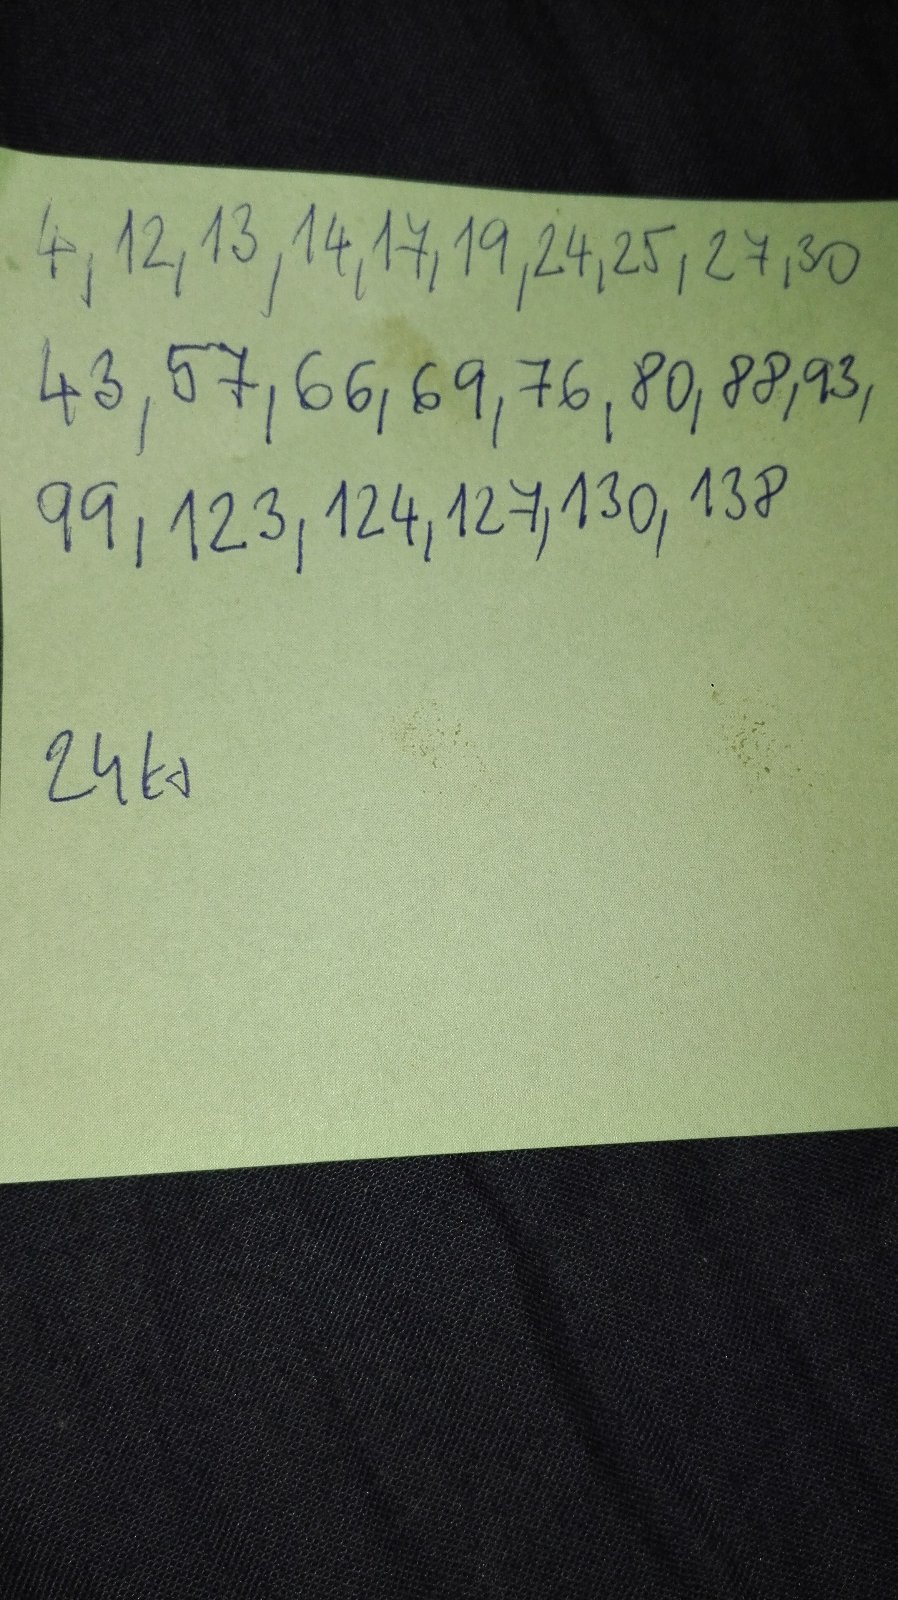 4, 12, 13, 14, 17, 19, 24, 25, 27, 30
43, 57, 66, 69, 76, 80, 88, 93,
99, 123, 124, 127, 130, 138
24 ks